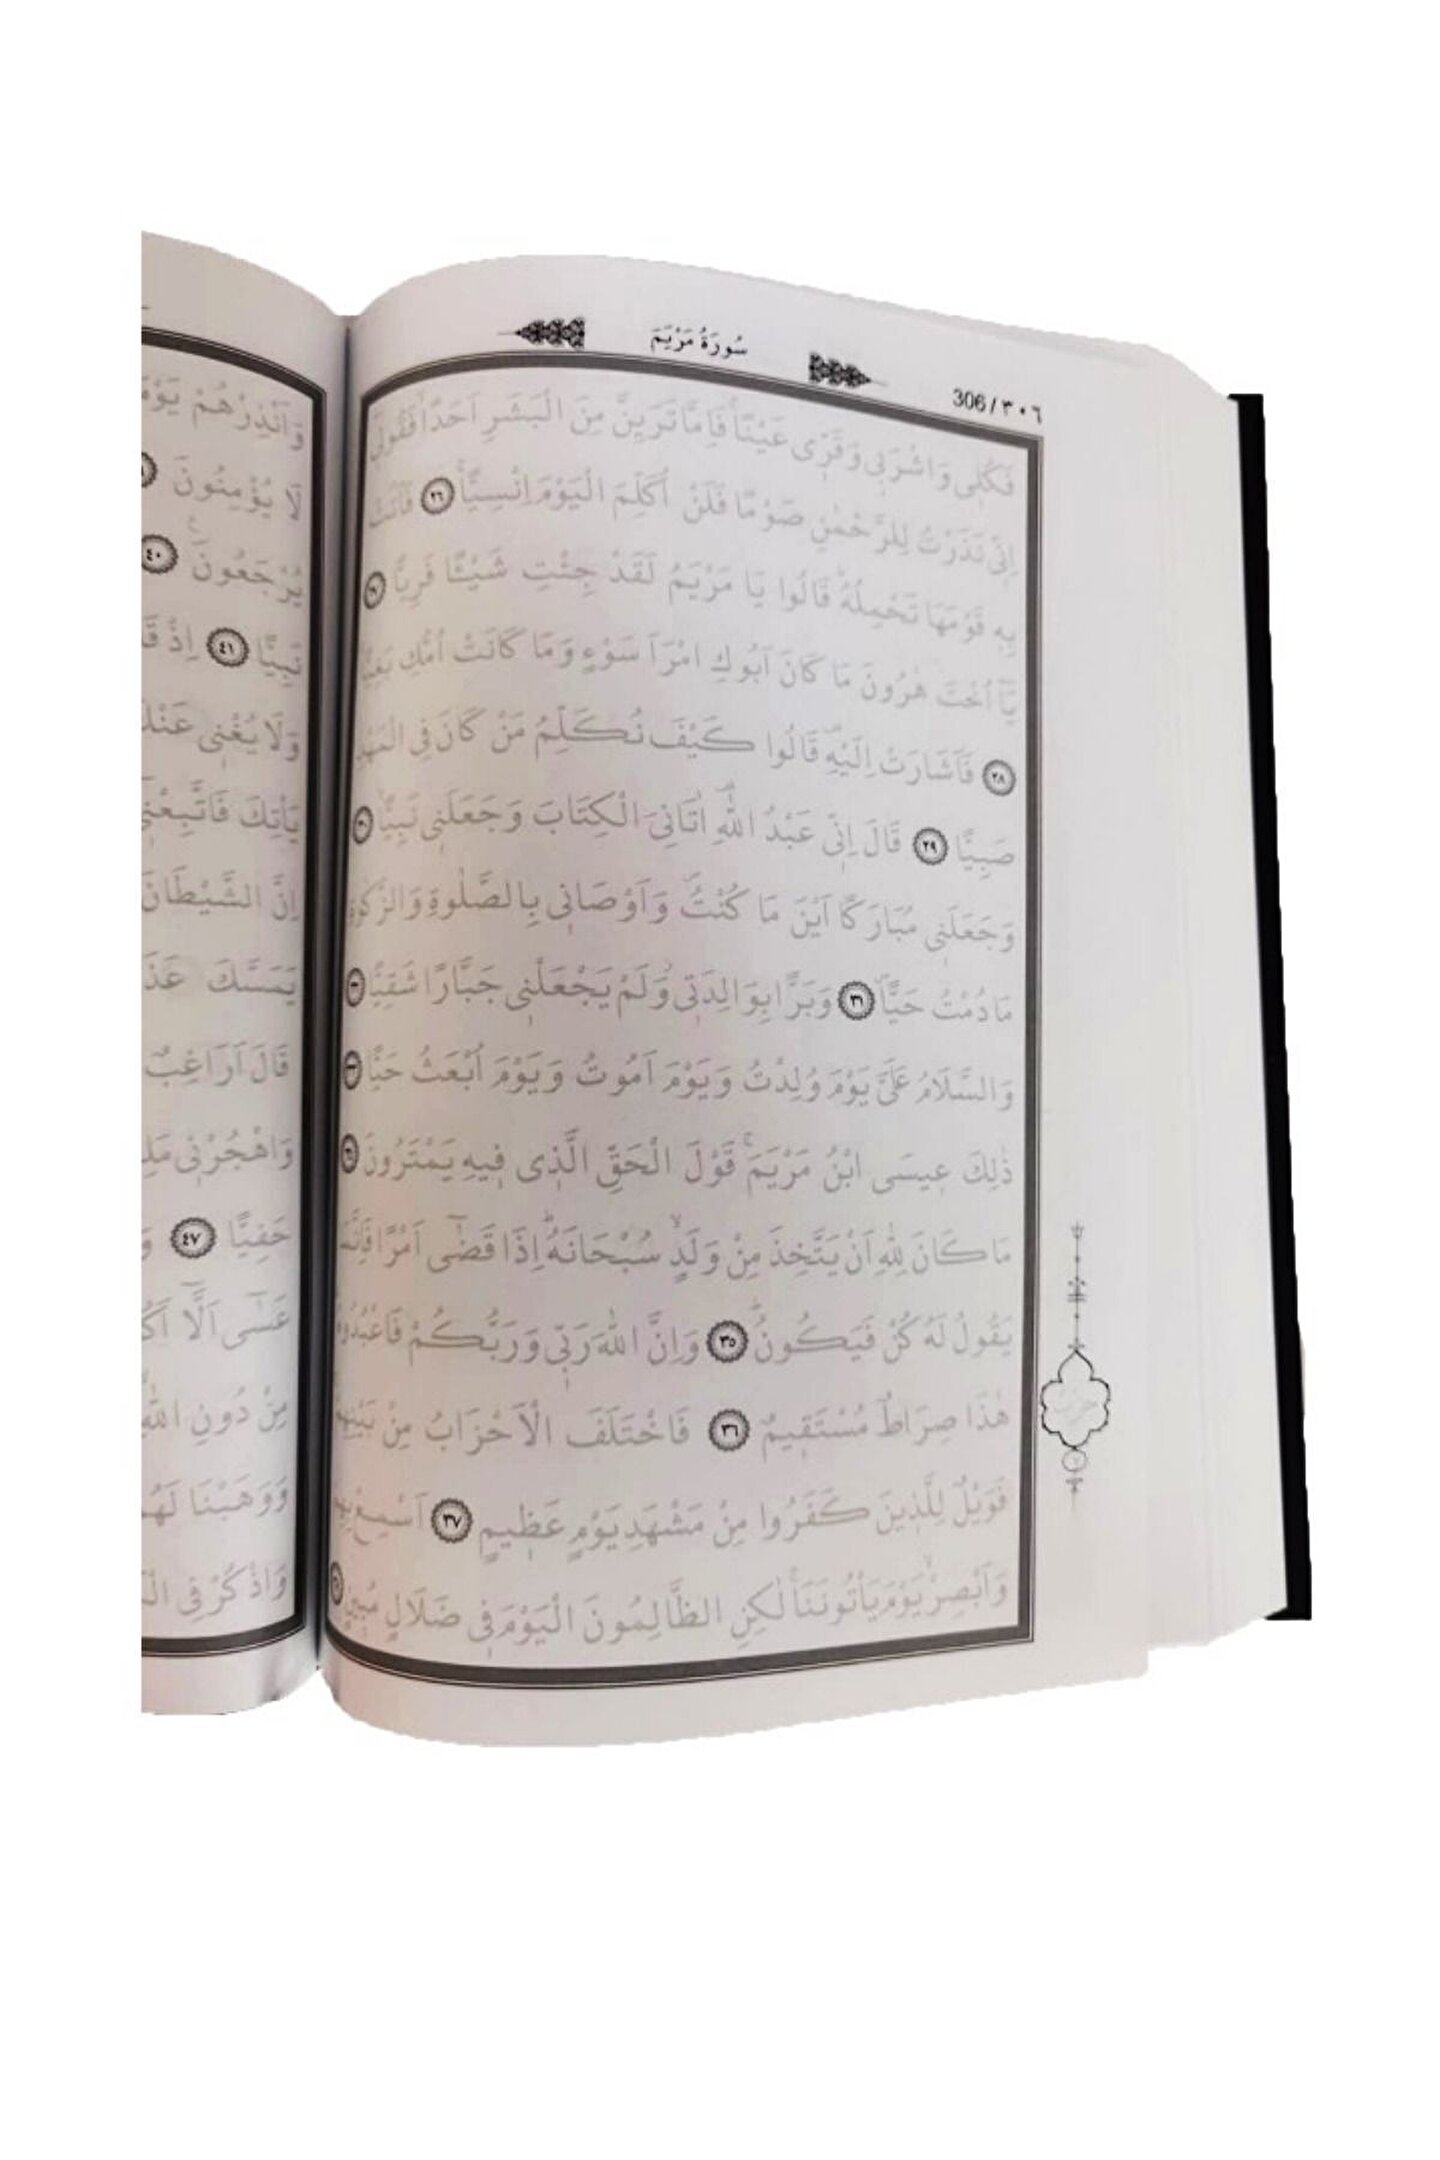 سُورَةُ مَرْيَمَ
306 / ٣٠٦
فَكُلِى وَاشْرَبِى وَقَرِّى عَيْنًاۚ فَاِمَّا تَرَيِنَّ مِنَ الْبَشَرِ اَحَدًاۙ فَقُولِٓى
اِنِّى نَذَرْتُ لِلرَّحْمٰنِ صَوْمًا فَلَنْ اُكَلِّمَ الْيَوْمَ اِنْسِيًّاۚ ﴿٢٦﴾ فَاَتَتْ
بِهِ قَوْمَهَا تَحْمِلُهُۜ قَالُوا يَا مَرْيَمُ لَقَدْ جِئْتِ شَيْـًٔا فَرِيًّا ﴿٢٧﴾
يَٓا اُخْتَ هٰرُونَ مَا كَانَ اَبُوكِ امْرَاَ سَوْءٍ وَمَا كَانَتْ اُمُّكِ بَغِيًّا
﴿٢٨﴾ فَاَشَارَتْ اِلَيْهِۜ قَالُوا كَيْفَ نُكَلِّمُ مَنْ كَانَ فِى الْمَهْدِ
صَبِيًّا ﴿٢٩﴾ قَالَ اِنِّى عَبْدُ اللّٰهِۜ اٰتَانِىَ الْكِتَابَ وَجَعَلَنِى نَبِيًّاۙ ﴿٣٠﴾
وَجَعَلَنِى مُبَارَكًا اَيْنَ مَا كُنْتُۖ وَاَوْصَانِى بِالصَّلٰوةِ وَالزَّكٰوةِ
مَا دُمْتُ حَيًّاۖ ﴿٣١﴾ وَبَرًّا بِوَالِدَتِىۘ وَلَمْ يَجْعَلْنِى جَبَّارًا شَقِيًّا ﴿٣٢﴾
وَالسَّلَامُ عَلَىَّ يَوْمَ وُلِدْتُ وَيَوْمَ اَمُوتُ وَيَوْمَ اُبْعَثُ حَيًّا ﴿٣٣﴾
ذٰلِكَ عِيسَى ابْنُ مَرْيَمَۚ قَوْلَ الْحَقِّ الَّذِى فِيهِ يَمْتَرُونَ ﴿٣٤﴾
مَا كَانَ لِلّٰهِ اَنْ يَتَّخِذَ مِنْ وَلَدٍۙ سُبْحَانَهُۜ اِذَا قَضٰٓى اَمْرًا فَاِنَّمَا
يَقُولُ لَهُ كُنْ فَيَكُونُۜ ﴿٣٥﴾ وَاِنَّ اللّٰهَ رَبِّى وَرَبُّكُمْ فَاعْبُدُوهُۜ
هٰذَا صِرَاطٌ مُسْتَقِيمٌ ﴿٣٦﴾ فَاخْتَلَفَ الْاَحْزَابُ مِنْ بَيْنِهِمْۚ
فَوَيْلٌ لِلَّذِينَ كَفَرُوا مِنْ مَشْهَدِ يَوْمٍ عَظِيمٍ ﴿٣٧﴾ اَسْمِعْ بِهِمْ
وَاَبْصِرْۙ يَوْمَ يَأْتُونَنَاۚ لٰكِنِ الظَّالِمُونَ الْيَوْمَ فِى ضَلَالٍ مُبِينٍ ﴿٣٨﴾
وَاَنْذِرْهُمْ يَوْمَ
لَا يُؤْمِنُونَ
يُرْجَعُونَ۟ ﴿٤٠﴾
نَبِيًّا ﴿٤١﴾ اِذْ قَا
وَلَا يُغْنِى عَنْكَ
يَأْتِكَ فَاتَّبِعْنِى
اِنَّ الشَّيْطَانَ
يَمَسَّكَ عَذَا
قَالَ اَرَاغِبٌ
وَاهْجُرْنِى مَلِ
حَفِيًّا ﴿٤٧﴾ وَ
عَسٰٓى اَلَّٓا اَكُ
مِنْ دُونِ اللّٰهِ
وَوَهَبْنَا لَهُمْ
وَاذْكُرْ فِى الْ